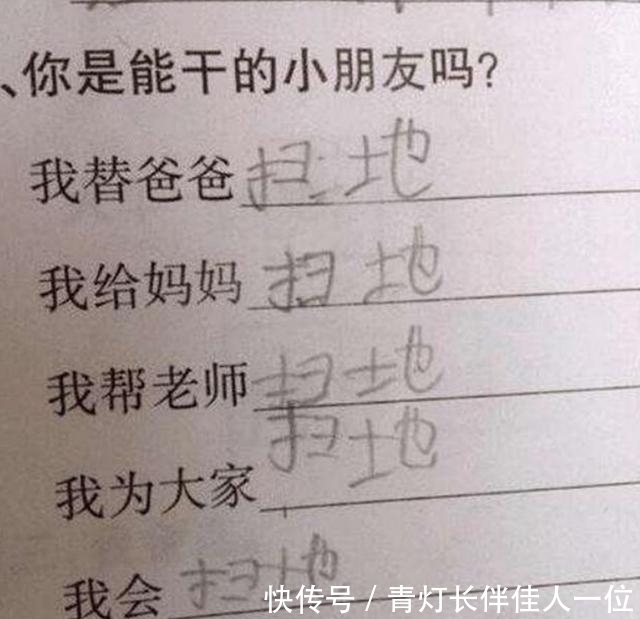 、你是能干的小朋友吗?
我替爸爸扫地
我给妈妈扫地
我帮老师扫地
我为大家扫地
我会扫地
快传号 / 青灯长伴佳人一位